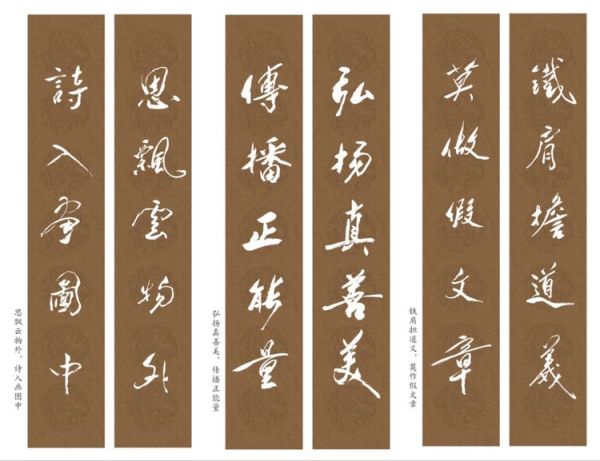 鐵肩擔道義
莫做假文章
铁肩担道义、莫作假文章
弘扬真善美
傳播正能量
弘扬真善美、传播正能量
思飄雲物外
詩入畫圖中
思飘云物外、诗入画图中